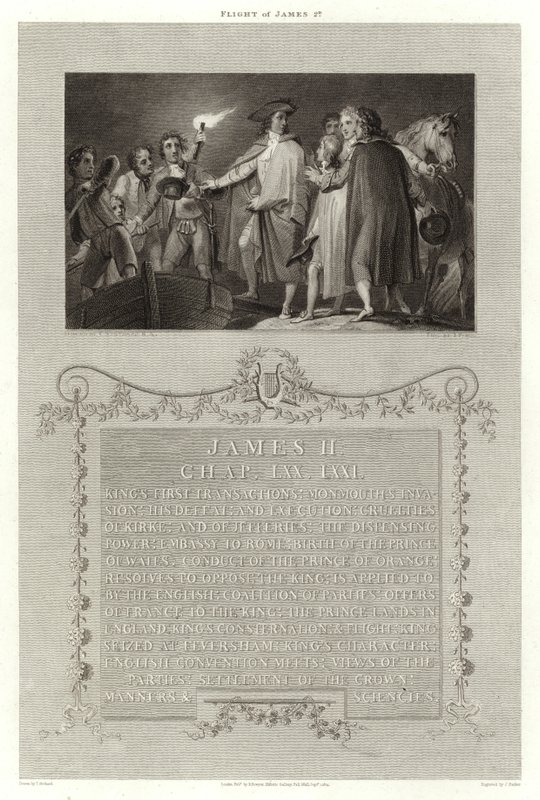 FLIGHT of JAMES 2ᵈ
JAMES II.
CHAP. LXX, LXXI.
KING'S FIRST TRANSACTIONS: MONMOUTH'S INVA-
SION; HIS DEFEAT; AND EXECUTION: CRUELTIES
OF KIRKE; AND OF JEFFERIES; THE DISPENSING
POWER: EMBASSY TO ROME: BIRTH OF THE PRINCE
OF WALES: CONDUCT OF THE PRINCE OF ORANGE;
RESOLVES TO OPPOSE THE KING; IS APPLIED TO
BY THE ENGLISH: COALITION OF PARTIES: OFFERS
OF FRANCE TO THE KING: THE PRINCE LANDS IN
ENGLAND: KING'S CONSTERNATION, & FLIGHT: KING
SEIZED AT FEVERSHAM: KING'S CHARACTER:
ENGLISH CONVENTION MEETS: VIEWS OF THE
PARTIES: SETTLEMENT OF THE CROWN:
MANNERS & SCIENCES.
Drawn by T. Stothard
London Pubᵈ by R. Bowyer, Historic Gallery, Pall Mall,
Engraved by J. Parker